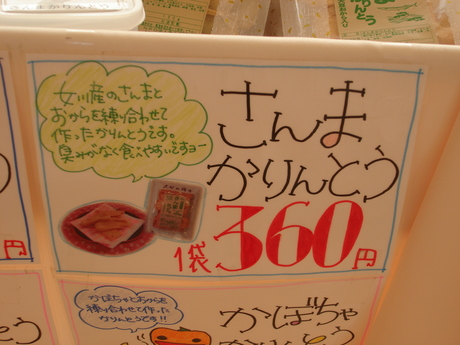 さんまかりんとう
女川産のさんまと
おからを練り合わせて
作ったかりんとうです。
臭みがなく食べやすいですヨー
さんま
かりんとう
1袋 360円
円
かぼちゃとおからを
練り合わせて作った
かりんとうです!!
かぼちゃ
かりんとう